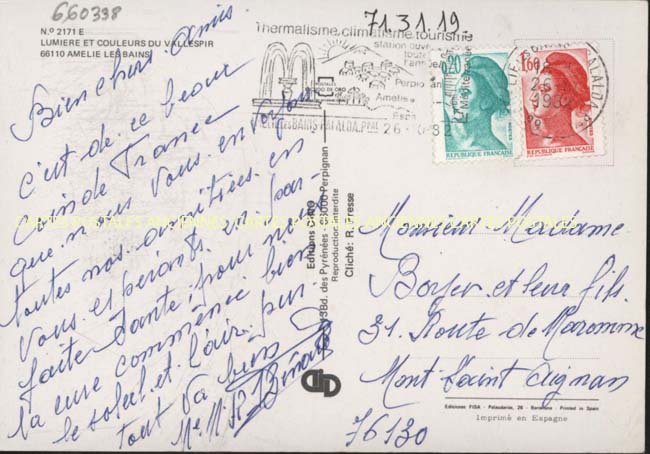 660338
71.31.19.
N.º 2171 E
LUMIERE ET COULEURS DU VALLESPIR
66110 AMELIE LES BAINS
Bien chers amis
c'est de ce beau
coin de France
que nous vous envoyons
toutes nos amitiées en
vous espérants en par-
faite santé; pour nous
la cure commence bien
le soleil et l'air pur
tout va bien
Thermalisme climatisme tourisme
station ouverte
toute
l'année
Perpignan
Amélie
AMELIE LES BAINS PALALDA, P.ORI.
26-
0.20
REPUBLIQUE FRANÇAISE
1.60
REPUBLIQUE FRANÇAISE
1982
Editions
Bd. des Pyrénées - 66000 Perpignan
Reproduction interdite
Cliché: R.
Monsieur Madame
Boyer et leur fils.
31. Route de Maromme
Mont Saint Aignan
76130
Ediciones FISA - Palaudarias, 26 - Barcelona - Printed in Spain
Imprimé en Espagne